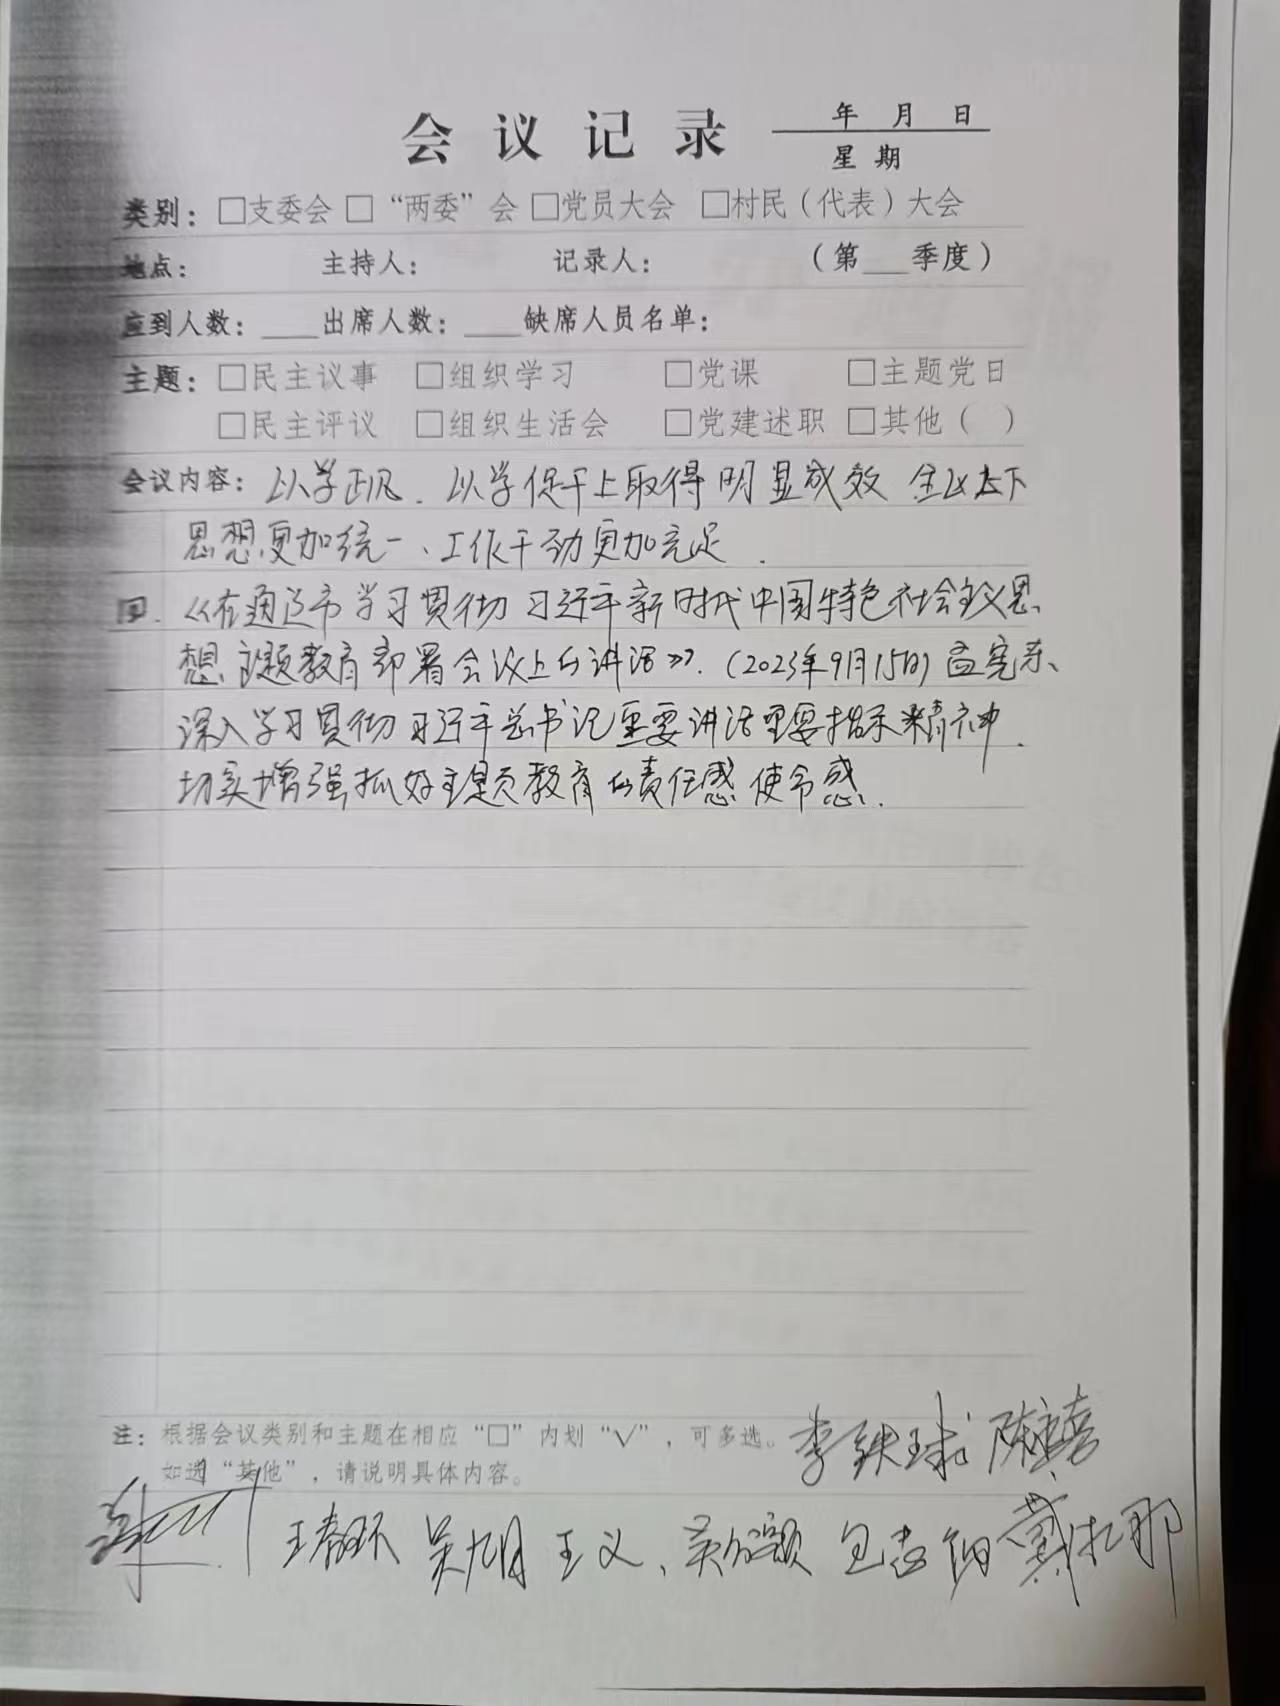 会议记录 年 月 日
星期
类别：□支委会 □“两委”会 □党员大会 □村民（代表）大会
地点： 主持人： 记录人： （第___季度）
应到人数：____出席人数：____缺席人员名单：
主题：□民主议事 □组织学习 □党课 □主题党日
□民主评议 □组织生活会 □党建述职 □其他（ ）
会议内容：以学正风、以学促干上取得明显成效 全区上下
思想更加统一、工作干劲更加充足．
四．《在通辽市学习贯彻习近平新时代中国特色社会主义思
想主题教育部署会议上的讲话》．(2023年9月15日)孟宪东、
深入学习贯彻习近平总书记重要讲话重要指示精神．
切实增强抓好主题教育的责任感使命感．
注：根据会议类别和主题在相应“□”内划“√”，可多选。
如选“其他”，请说明具体内容。
李铁球
王义、包志